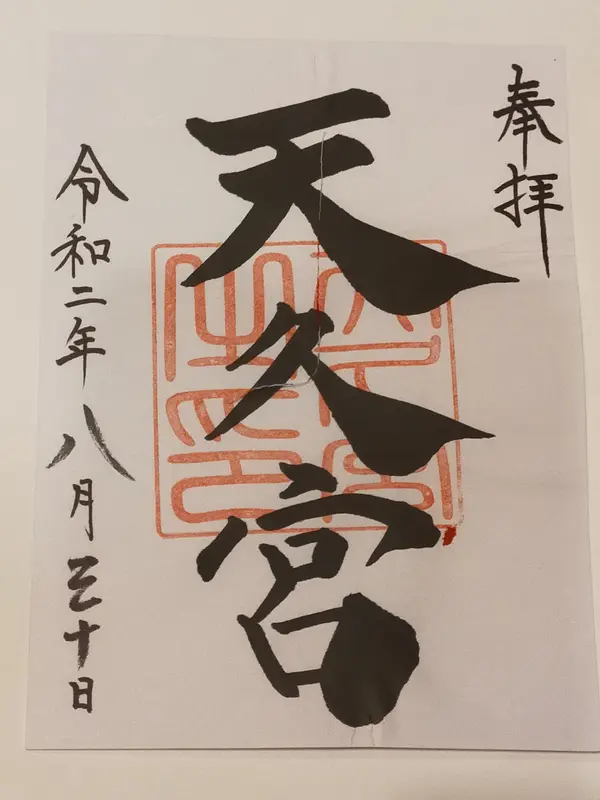 奉拝
天久宮
令和二年八月三十日